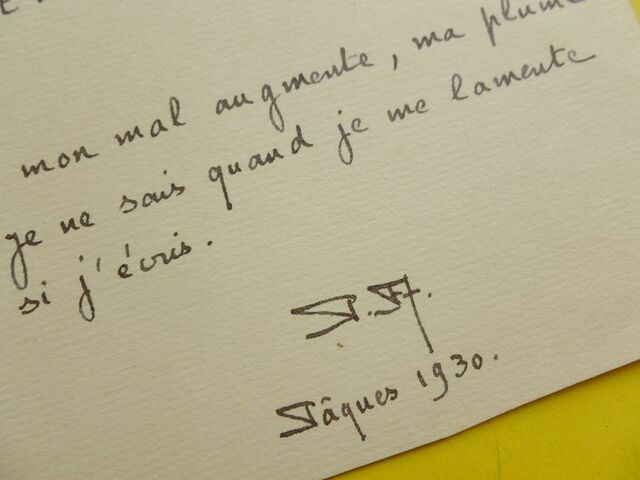 mon mal augmente, ma plume
je ne sais quand je me lamente
si j'écris.
P.
Pâques 1930.